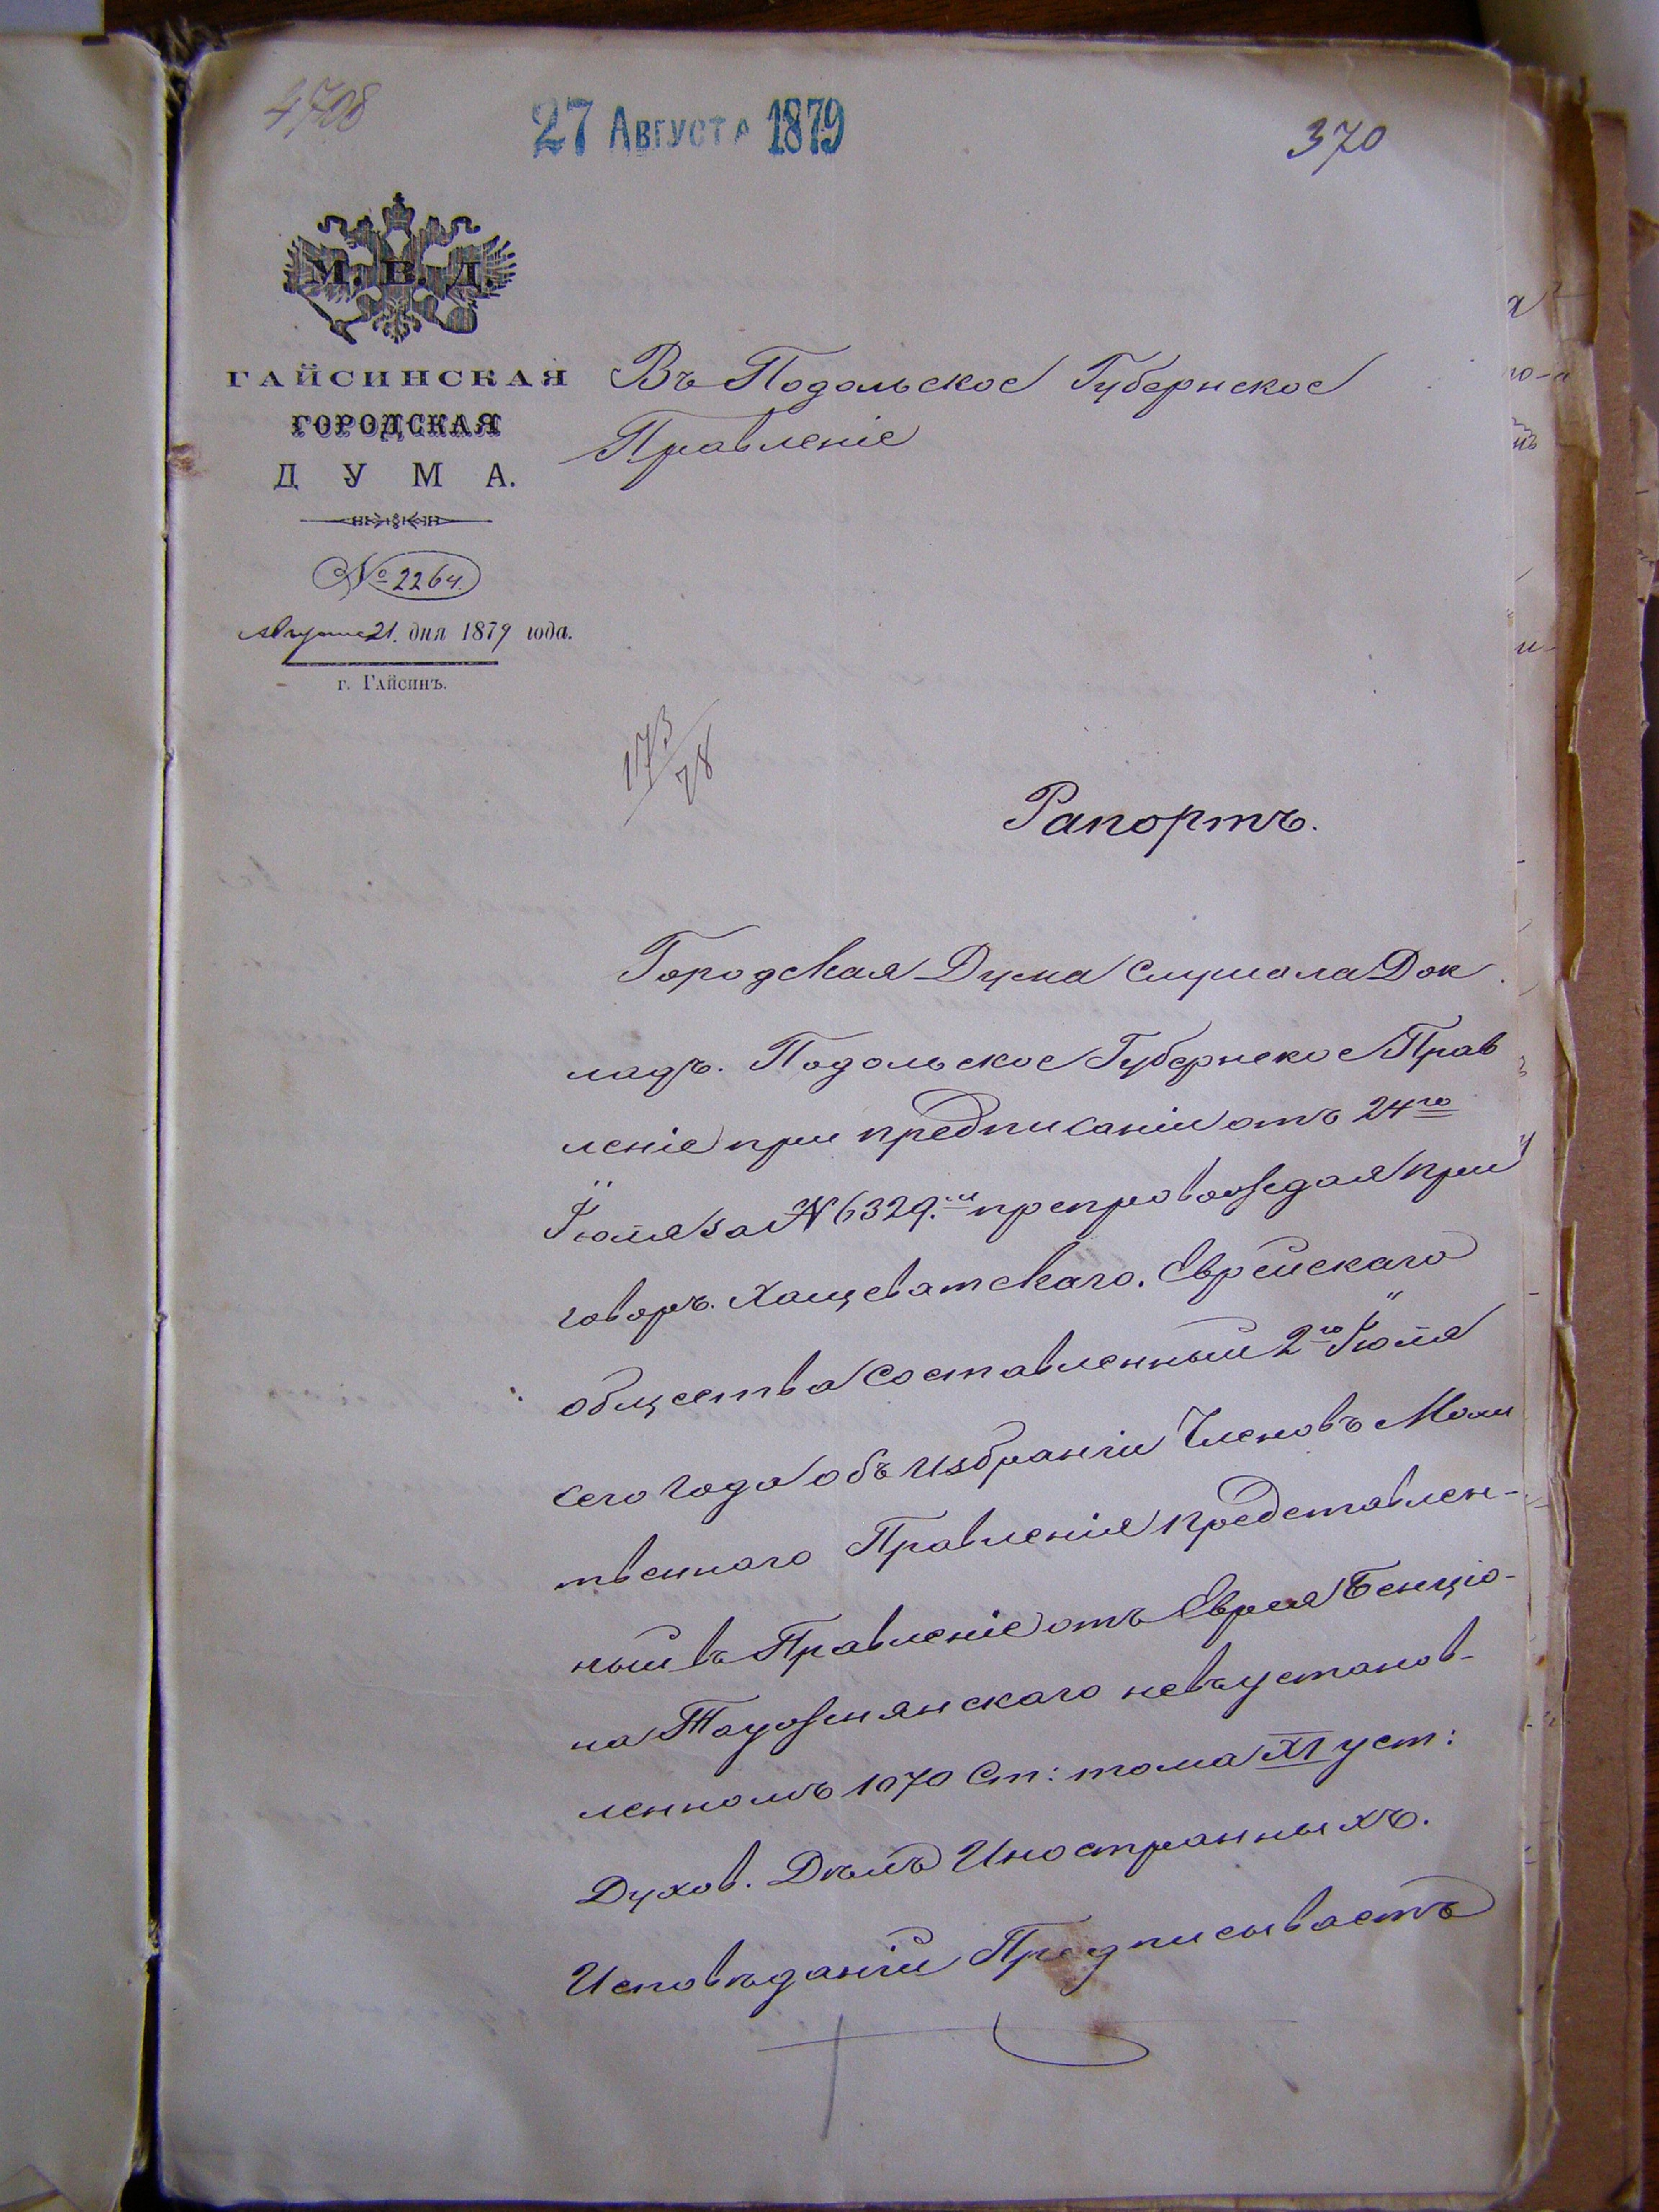 4708
27 Августа 1879
370
М. В. Д.
ГАЙСИНСКАЯ
ГОРОДСКАЯ
ДУМА.
№ 2264.
Августа 21. дня 1879 года.
г. Гайсинъ.
Въ Подольское Губернское
Правленіе
173/78
Рапортъ.
Городская Дума слушала Док
ладъ. Подольское Губернское Прав
леніе при предписаніи отъ 24го
Іюля за № 6329.мъ препровождая при
говоръ. Хащеватскаго. Еврейскаго
общества составленный 2го Іюля
сего года объ избраніи Членовъ Моли
твеннаго Правленія представлен-
ный въ Правленіе отъ Еврея Бенціо-
на невъ установ-
ленномъ 1070 Ст: тома XI уст:
Духов. Дѣлъ Иностранныхъ.
Исповѣданій Предписываетъ